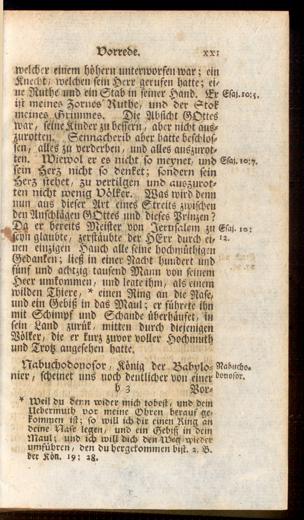 Vorrede. XXI
welcher einem höhern unterworfen war; ein
Knecht, welchen sein Herr gerufen hatte; ei-
ne Ruthe und ein Stab in seiner Hand. Er Esaj. 10: 5.
ist meines Zornes Ruthe, und der Stok
meines Grimmes. Die Absicht GOttes
war, seine Kinder zu bessern, aber nicht aus-
zurotten. Sennacherib aber hatte beschlos-
sen, alles zu verderben, und alles auszurot-
ten. Wiewol er es nicht so meynet, und Esaj. 10: 7.
sein Herz nicht so denket; sondern sein
Herz stehet, zu vertilgen und auszurot-
ten nicht wenig Völker. Was wird denn
nun aus dieser Art eines Streits zwischen
den Anschlägen GOttes und dieses Prinzen?
Da er bereits Meister von Jerusalem zu Esaj. 10:
seyn glaubt, zerstäubte der HErr durch ei- 12.
nen einzigen Hauch alle seine hochmüthigen
Gedanken; ließ in einer Nacht hundert und
fünf und achtzig tausend Mann von seinem
Heer umkommen, und legte ihm, als einem
wilden Thiere, * einen Ring an die Nase,
und ein Gebiß in das Maul; er führete ihn
mit Schimpf und Schande überhäufet, in
sein Land zurük, mitten durch diejenigen
Völker, die er kurz zuvor voller Hochmuth
und Trotz angesehen hatte.
Nabuchodonosor, König der Babylo- Nabucho-
nier, scheinet uns noch deutlicher von einer donosor.
b 3 Vor-
* Weil du denn wider mich tobest, und dein
Uebermuth vor meine Ohren herauf ge-
kommen ist; so will ich dir einen Ring an
deine Nase legen, und ein Gebiß in dein
Maul; und ich will dich den Weg wieder
umführen, den du hergekommen bist. 2. B.
der Kön. 19: 28.